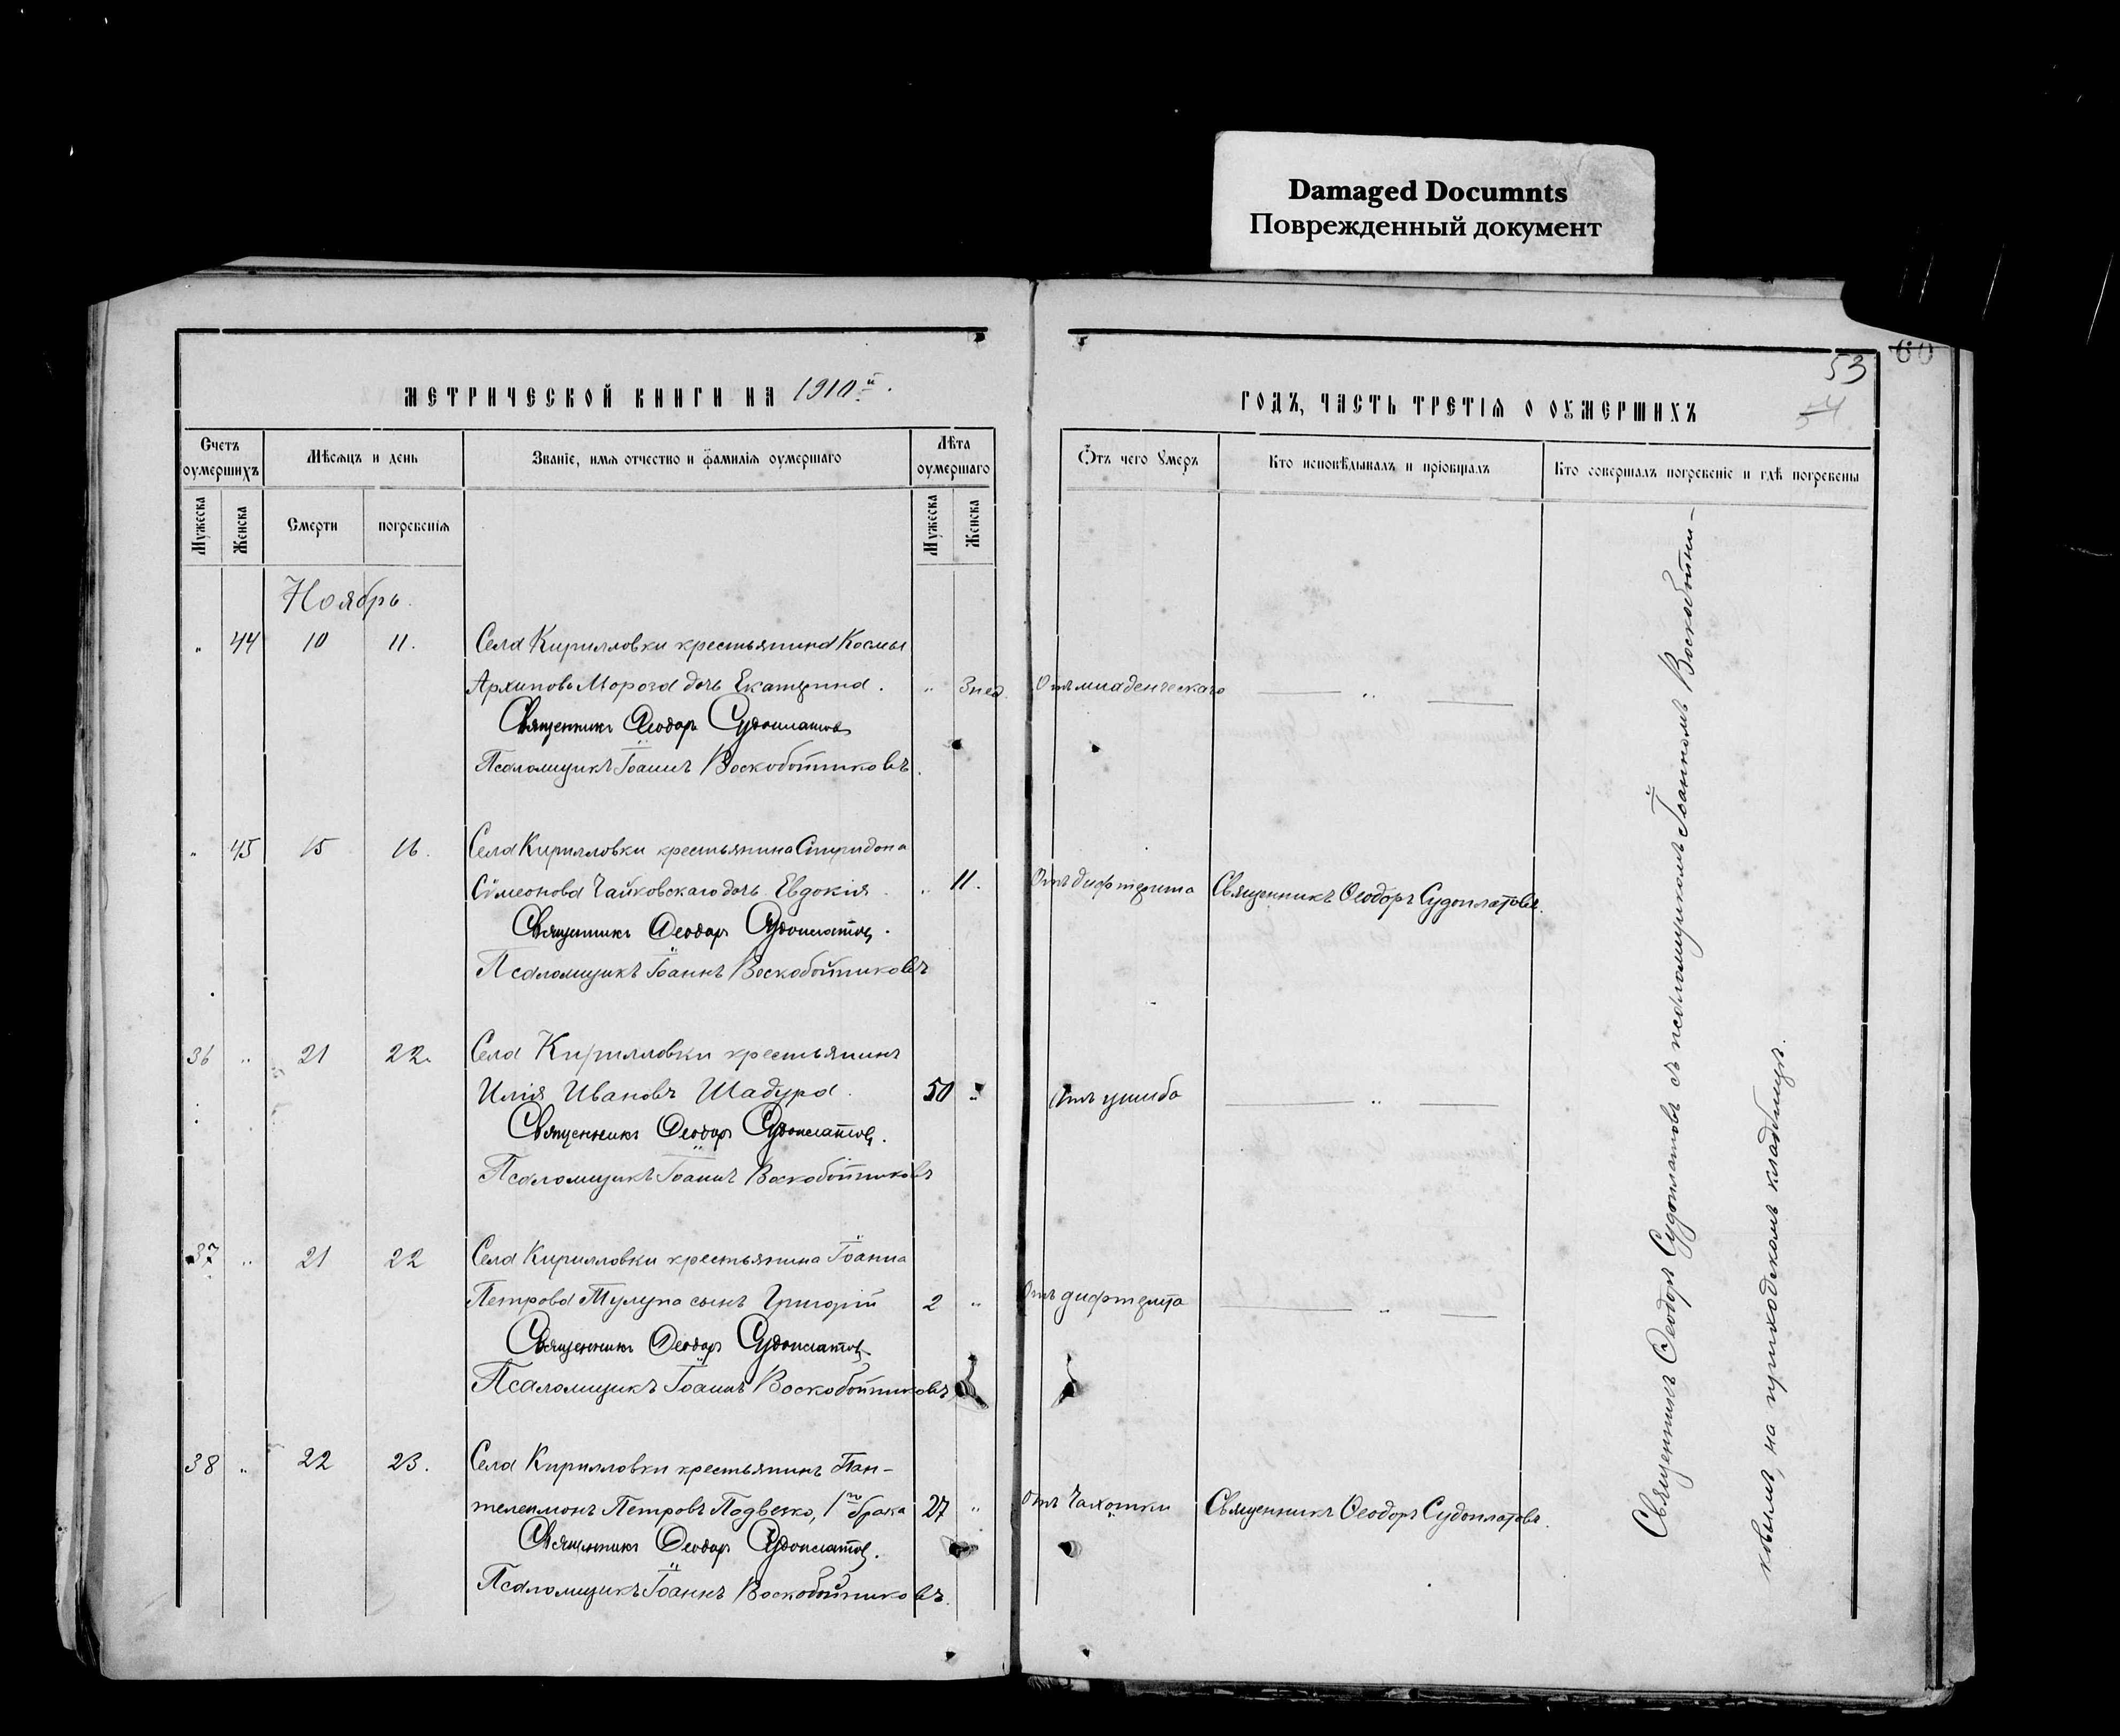 Damaged Documnts
Поврежденный документ
60
53
54
МЕТРИЧЕСКОЙ КНИГИ НА 1910й.
ГОДЪ, ЧАСТЬ ТРЕТІЯ О ОУМЕРШИХЪ
Счетъ оумершихъ
Мѣсяцъ и день
Званіе, имя отчество и фамилія оумершаго
Лѣта оумершаго
Отъ чего Умеръ
Кто исповѣдывалъ и пріобщалъ
Кто совершалъ погребеніе и гдѣ погребены
Мужеска
Женска
Смерти
погребенія
Мужеска
Женска
Ноябрь.
„ 44 10 11. Села Кирилловки крестьянина Космы
Архипова Мороза дочь Екатерина. „ 3 нед. Отъ младенческаго — „ —
Священникъ Ѳеодоръ Судоплатовъ
Псаломщикъ Іоаннъ Воскобойниковъ.
„ 45 15 16. Села Кирилловки крестьянина Спиридона
Сѵмеонова Чайковскаго дочь Евдокія. „ 11. Отъ дифтерита Священникъ Ѳеодоръ Судоплатовъ.
Священникъ Ѳеодоръ Судоплатовъ.
Псаломщикъ Іоаннъ Воскобойниковъ
36 „ 21 22. Села Кирилловки крестьянинъ
Илія Ивановъ Шадура. 50 „ Отъ ушиба — „ —
Священникъ Ѳеодоръ Судоплатовъ.
Псаломщикъ Іоаннъ Воскобойниковъ
37 „ 21 22 Села Кирилловки крестьянина Іоанна
Петрова Тулупа сынъ Григорій 2 „ Отъ дифтерита — „ —
Священникъ Ѳеодоръ Судоплатовъ
Псаломщикъ Іоаннъ Воскобойниковъ
38 „ 22 23. Села Кирилловки крестьянинъ Пан-
телеимонъ Петровъ Подвезко, 1го брака 27 „ Отъ Чахотки Священникъ Ѳеодоръ Судоплатовъ.
Священникъ Ѳеодоръ Судоплатовъ.
Псаломщикъ Іоаннъ Воскобойниковъ.
Священникъ Ѳеодоръ Судоплатовъ съ псаломщикомъ Іоанномъ Воскобойни-
ковымъ, на приходскомъ кладбищѣ.